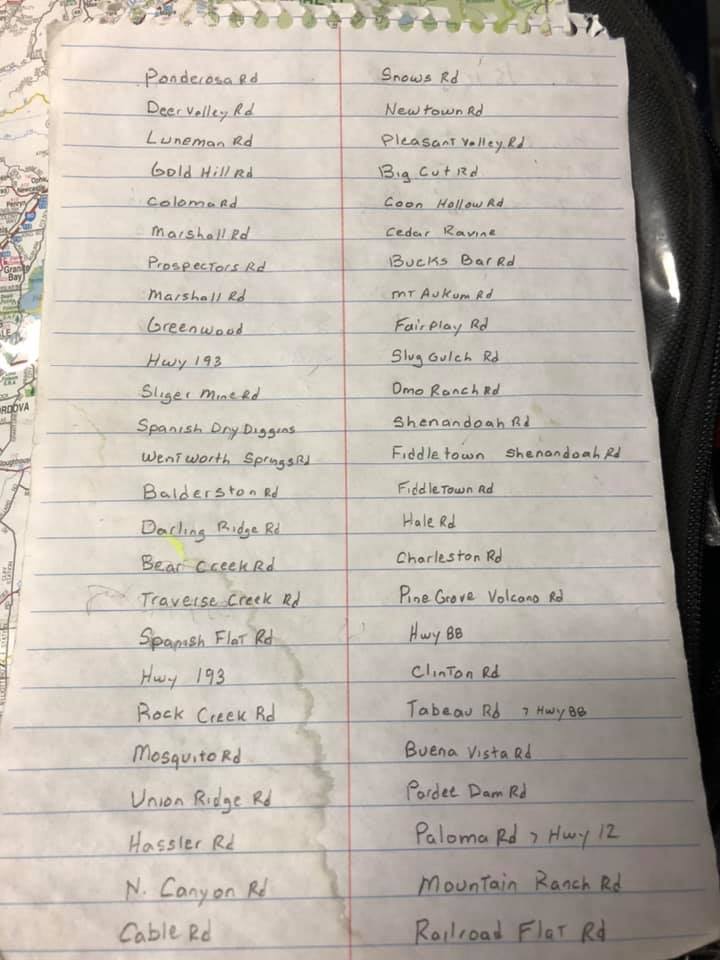 Ponderosa Rd
Deer Valley Rd
Luneman Rd
Gold Hill Rd
Coloma Rd
Marshall Rd
Prospectors Rd
Marshall Rd
Greenwood
Hwy 193
Sliger Mine Rd
Spanish Dry Diggins
Wentworth Springs Rd
Balderston Rd
Darling Ridge Rd
Bear Creek Rd
Traverse Creek Rd
Spanish Flat Rd
Hwy 193
Rock Creek Rd
Mosquito Rd
Union Ridge Rd
Hassler Rd
N. Canyon Rd
Cable Rd
Snows Rd
Newtown Rd
Pleasant Valley Rd
Big Cut Rd
Coon Hollow Rd
Cedar Ravine
Bucks Bar Rd
MT Aukum Rd
Fairplay Rd
Slug Gulch Rd
Omo Ranch Rd
Shenandoah Rd
Fiddletown Shenandoah Rd
FiddleTown Rd
Hale Rd
Charleston Rd
Pine Grove Volcano Rd
Hwy 88
Clinton Rd
Tabeau Rd > Hwy 88
Buena Vista Rd
Pardee Dam Rd
Paloma Rd > Hwy 12
Mountain Ranch Rd
Railroad Flat Rd
Granite
Bay